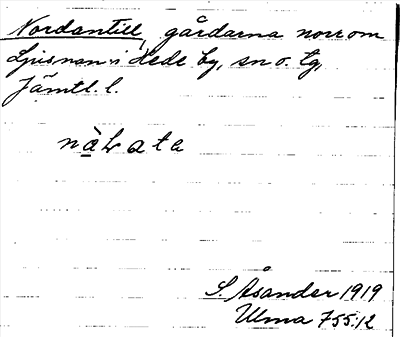 Nordantill, gårdarna norr om
Ljusnan i Hede by, sn o. tg,
Jämtl. l.
S. Åsander 1919
Ulma 755:12